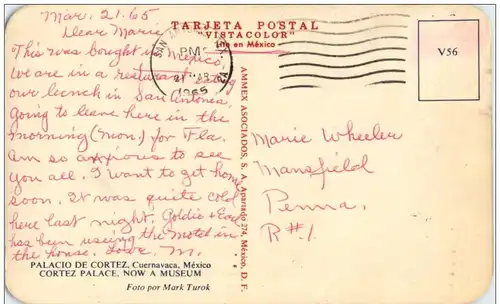 Mar. 21. 65
Dear Marie
This was bought in Mexico,
We are in a resturant eating
our lunch in San Antonio,
going to leave here in the
morning (Mon.) for Fla.
Am so anxious to see
you all. I want to get home
soon. It was quite cold
here last night. Goldie & Earl
has been useing the Motel in
the house. Love. M.
PALACIO DE CORTEZ, Cuernavaca, México
CORTEZ PALACE, NOW A MUSEUM
Foto por Mark Turok
TARJETA POSTAL
"VISTACOLOR"
en México
SAN
PM
21 MAR
1965
AMMEX ASOCIADOS, S. A. Apartado 274, México, D. F.
V56
Marie Wheeler
Mansfield
Penna.
R#1